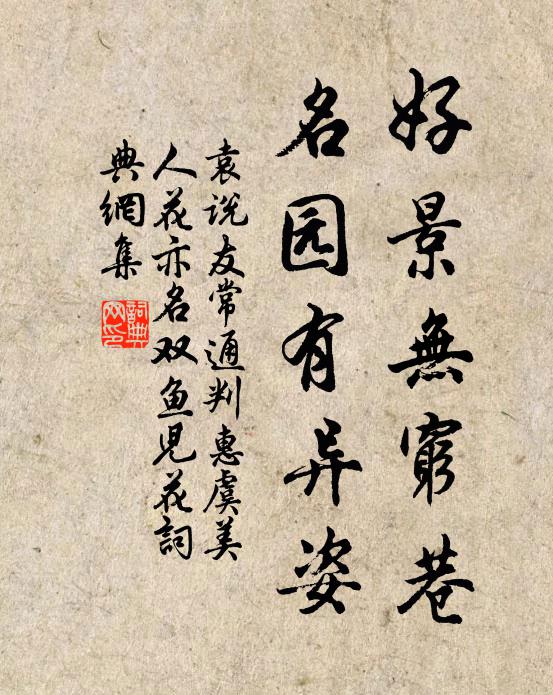 好景無窮巷
名园有异姿
袁说友常通判惠虞美
人花亦名双鱼児花詞
典網集
詞典
网印